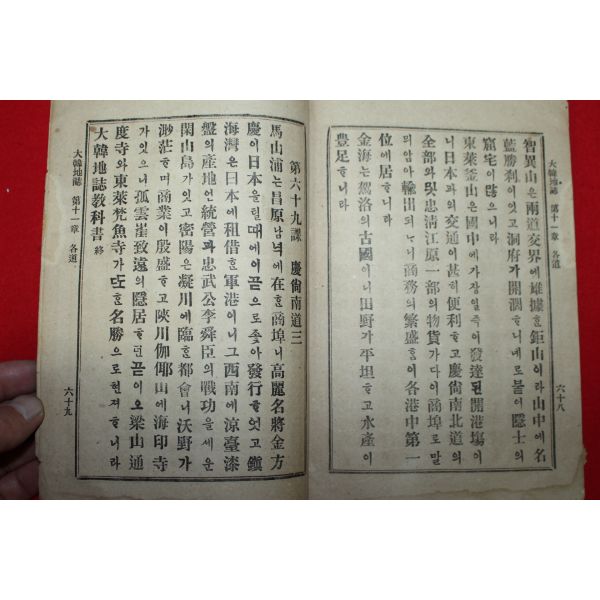 大韓地誌 第十一章 各道 六十八
智異山은兩道交界에雄據ᄒᆞᆫ鉅山이라山中에名
藍勝刹이잇고洞府가開濶ᄒᆞ니녜로붙어隱士의
窟宅이만ᄒᆞ니라
東萊釜山은國中에가장일즉이發達된開港場이
니日本과의交通이甚히便利ᄒᆞ고慶尙南北道의
全部와및忠淸江原一部의物貨가다이商埠로말
믜암아輸出되ᄂᆞ니商務의繁盛ᄒᆞᆷ이各港中第一
位에居ᄒᆞ니라
金海ᄂᆞᆫ駕洛의古國이니田野가平坦ᄒᆞ고水產이
豊足ᄒᆞ니라
第六十九課 慶尙南道三
馬山浦ᄂᆞᆫ昌原남녁에在ᄒᆞᆫ商埠니高麗名將金方
慶이日本을칠때에이곧으로좇아發行ᄒᆞ엿고鎭
海灣은日本에租借ᄒᆞᆫ軍港이니그西南에涼臺漆
盤의產地인統營과忠武公李舜臣의戰功을세운
閑山島가잇고密陽은凝川에臨ᄒᆞᆫ都會니沃野가
渺茫ᄒᆞ며商業이殷盛ᄒᆞ고陜川伽倻山에海印寺
가잇으니孤雲崔致遠의隱居ᄒᆞ던곧이오梁山通
度寺와東萊梵魚寺가ᄯᅩᄒᆞᆫ名勝으로현저ᄒᆞ니라
大韓地誌敎科書 終
大韓地誌 第十一章 各道 六十九